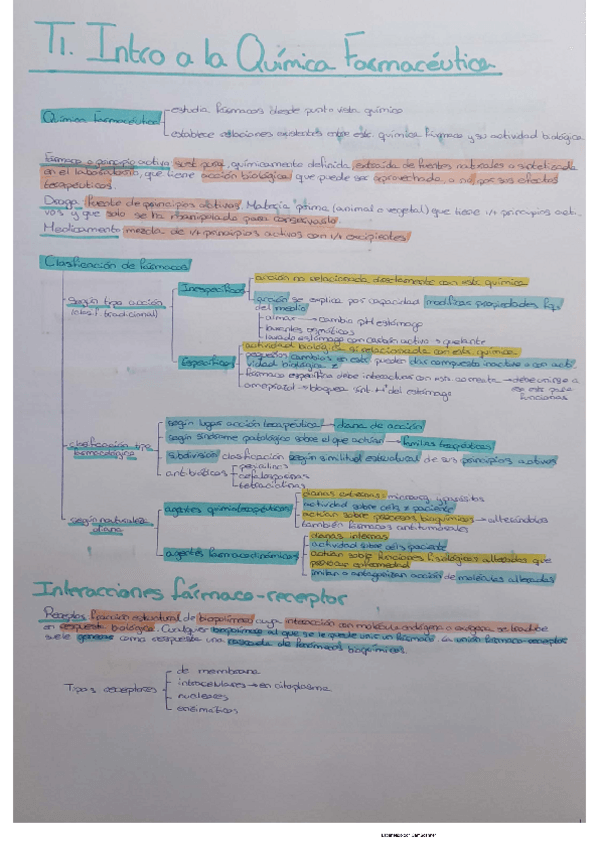 T1. Intro a la Química Farmacéutica
Química Farmacéutica
estudia fármacos desde punto vista químico
establece relaciones existentes entre estr. química fármaco y su actividad biológica
Fármaco o principio activo sust. pura, químicamente definida, extraída de fuentes naturales o sintetizada
en el laboratorio, que tiene acción biológica que puede ser aprovechada, o no, por sus efectos
terapéuticos.
Droga fuente de principios activos. Materia prima (animal o vegetal) que tiene 1/+ principios acti-
vos y que solo se ha manipulado para conservarlo
Medicamento mezcla de 1/+ principios activos con 1/+ excipientes
Clasificación de fármacos
según tipo acción
(clasif. tradicional)
Inespecíficos
acción no relacionada directamente con estr. química
acción se explica por capacidad modificar propiedades fq.
del medio
cambio pH estómago
laxantes osmóticos
lavado estómago con carbón activo
Específicos
actividad biológica sí relacionada con estr. química
pequeños cambios en estr. pueden dar compuesto inactivo o con acti-
vidad biológica
fármaco específico debe interactuar con
debe unirse a
para
funcionar
omeprazol → bloquea sínt. H+ del estómago
clasificación tipo
farmacológica
según lugar acción terapéutica → diana de acción
según síndrome patológico sobre el que actúan → familias terapéuticas
subdivisión clasificación según similitud estructural de sus principios activos
antibióticos
penicilinas
cefalosporinas
tetraciclinas
según naturaleza
diana
agentes quimioterapéuticos
dianas externas: microorg. y parásitos
actividad sobre céls. ≠ paciente
actúan sobre procesos bioquímicos → alterándolos
también fármacos antitumorales
agentes farmacodinámicos
dianas internas
actividad sobre céls paciente
actúan sobre funciones fisiológicas alteradas que
provocan enfermedad
imitan o antagonizan acción de moléculas alteradas
Interacciones fármaco-receptor
Receptor fracción estructural de biopolímero cuya interacción con molécula endógena o exógena se traduce
en respuesta biológica. Cualquier biopolímero al que se le puede unir un fármaco. La unión fármaco-receptor
suele generar como respuesta una cascada de fenómenos bioquímicos
Tipos receptores
de membrana
intracelulares → en citoplasma
nucleares
enzimáticos